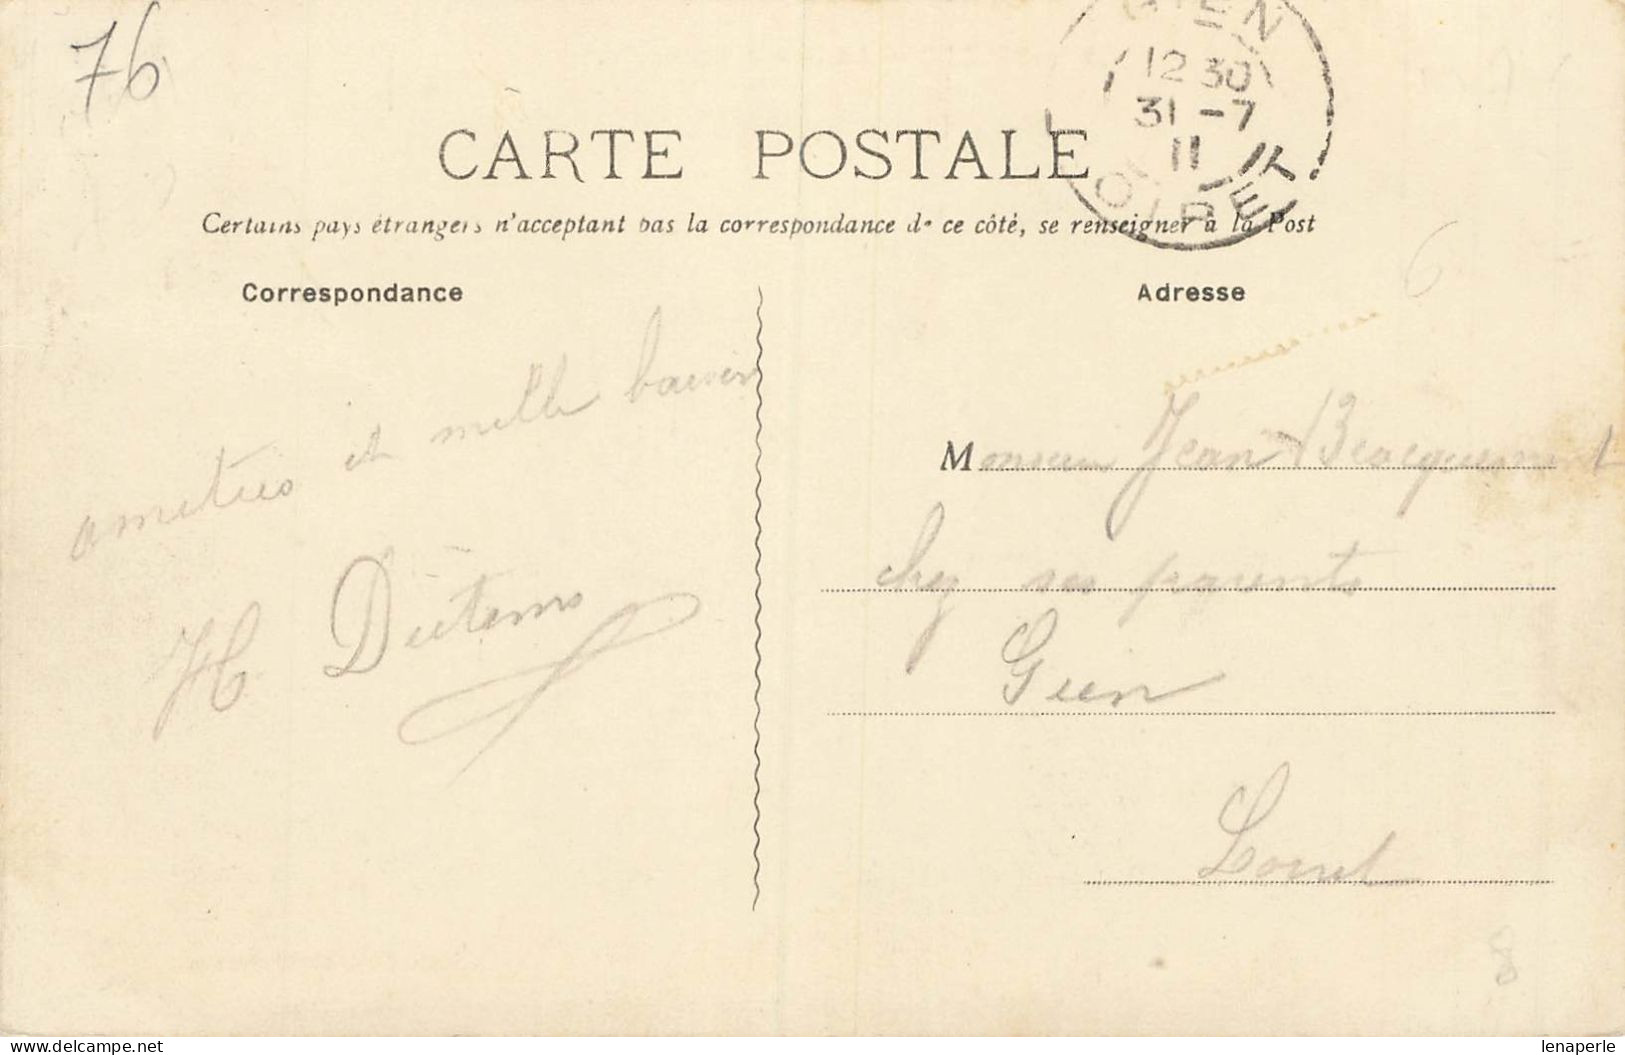 76
GIEN
12 30
31 -7
11
LOIRET
CARTE POSTALE
Certains pays étrangers n'acceptant pas la correspondance de ce côté, se renseigner à la Post
6
Correspondance
Adresse
amitiés et mille baisers
H. Diétens
Monsieur Jean
chez ses parents
Gien
Loiret
8
www.delcampe.net
lenaperle